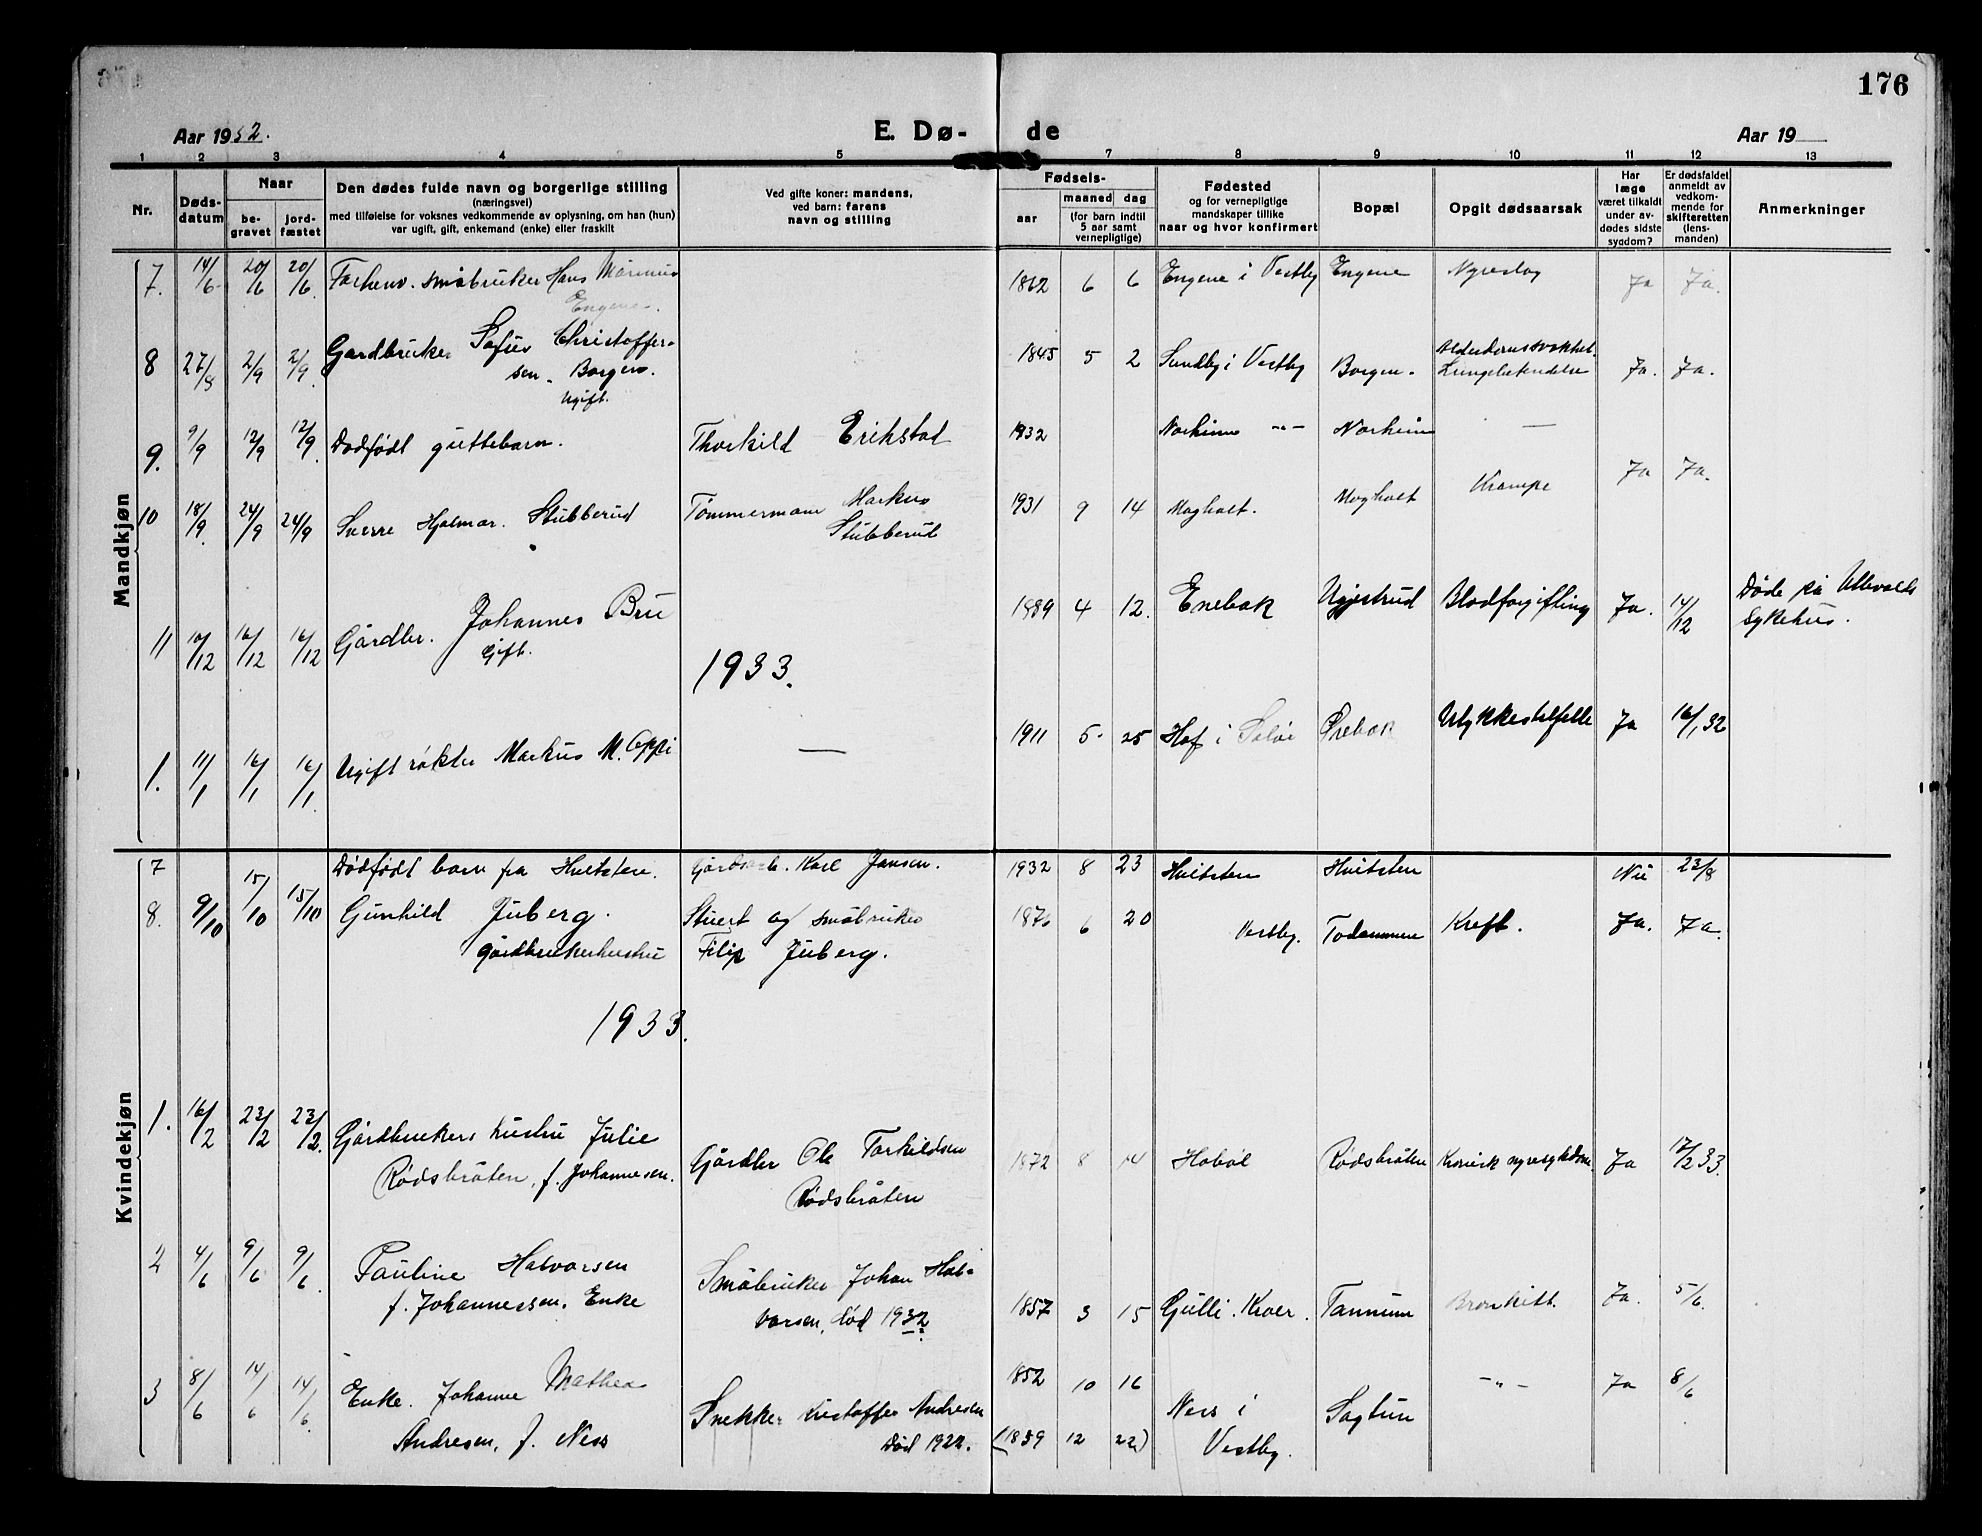 176
Aar 1932.
E. Dø-
de
Aar 19
1 2 3 4 5 7 8 9 10 11 12 13
Nr.
Døds-
datum
Naar
be-
gravet
jord-
fæstet
Den dødes fulde navn og borgerlige stilling
(næringsvei)
med tilføielse for voksnes vedkommende av oplysning, om han (hun)
var ugift, gift, enkemand (enke) eller fraskilt
Ved gifte koner: mandens,
ved barn: farens
navn og stilling
Fødsels-
aar
maaned dag
(for barn indtil
5 aar samt
vernepligtige)
Fødested
og for vernepligtige
mandskaper tillike
naar og hvor konfirmert
Bopæl
Opgit dødsaarsak
Har
læge
været tilkaldt
under av-
dødes sidste
sygdom?
Er dødsfaldet
anmeldt av
vedkom-
mende for
skifteretten
(lens-
manden)
Anmerkninger
Mandkjøn
7. 14/6 20/6 20/6. småbruker Hans Marinus 1862 6 6 Engene i Vestby Engene Nyreslag Ja Ja.
Engene.
8 27/8 2/9 2/9. Gardbruker Sofus Christoffer- 1845 5 2 Sundby i Vestby Borgen. Alderdomssvakhet. Ja. Ja.
sen. Borgen. Lungebetendelse
Ugift.
9. 9/9 12/9 12/9. Dødfødt guttebarn. Thorkild Erikstad 1932 Norheim -"- Norheim — Ja Ja.
10 18/9. 24/9 24/9 Sverre Hjalmar. Stubberud Tømmermann Markus 1931 9 14 Mogholt. Krampe
Stubberud
11 10/12 16/12 16/12 Gårdbr. Johannes Bru 1889 4 12. Enebak Blodforgiftning Ja. 14/12 Døde på Ullevold
Gift. sykehus.
1933.
1. 11/1 16/1 16/1. Ugift røkter Markus M. Oppi — 1911 5 25 Hof i Solør Ørebæk Ulykkestilfelle Ja 16/1 32
Kvindekjøn
7 Dødfødt barn på Hvitsten. Karl Jansen. 1932 8 23 Hvitsten Hvitsten Nei 23/8
8. 9/10 15/10 15/10 Gunhild Juberg. Stuert og småbruker 1876 6 20 Vestby. Kreft. Ja. Ja.
gårdbrukerhustru Filip Juberg.
1933.
1. 16/2 23/2 23/2. Gårdbrukers hustru Julie Gårdbr Ole Torkildsen 1872 8 14 Hobøl Rødsbråten Kronisk nyresykdom. Ja 17/2 33.
Rødsbråten, f. Johannesen. Rødsbråten
2 4/6 9/6 9/6. Pauline Halvorsen Småbruker Johan Hal- 1857 3 15 Gulli. Kroer. Tannum Bronkitt. Ja. 5/6.
f. Johannessen. Enke vorsen, død 1932
3 8/6 14/6 14/6. Enke. Johanne Mathea Snekker Kristoffer Andresen 1852 10 16 Ness i Sagtun -"- Ja 8/6
Andresen, f. Ness Død 1922. (1839 12 22) Vestby.